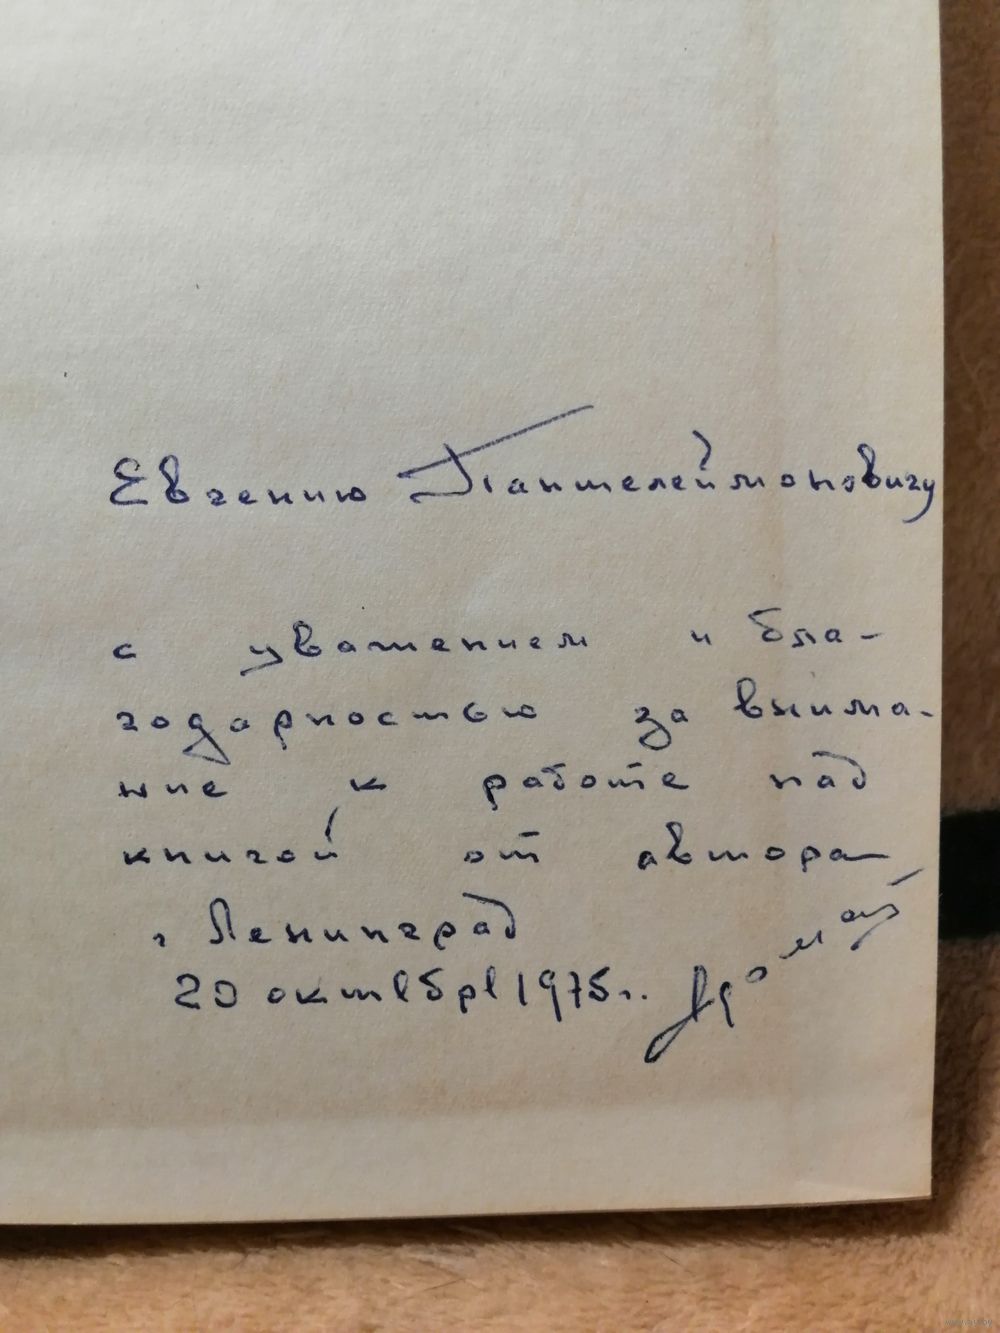 Евгению Пантелеймоновичу
с уважением и бла-
годарностью за внима-
ние к работе над
книгой от автора
г Ленинград
20 октября 1975 г.